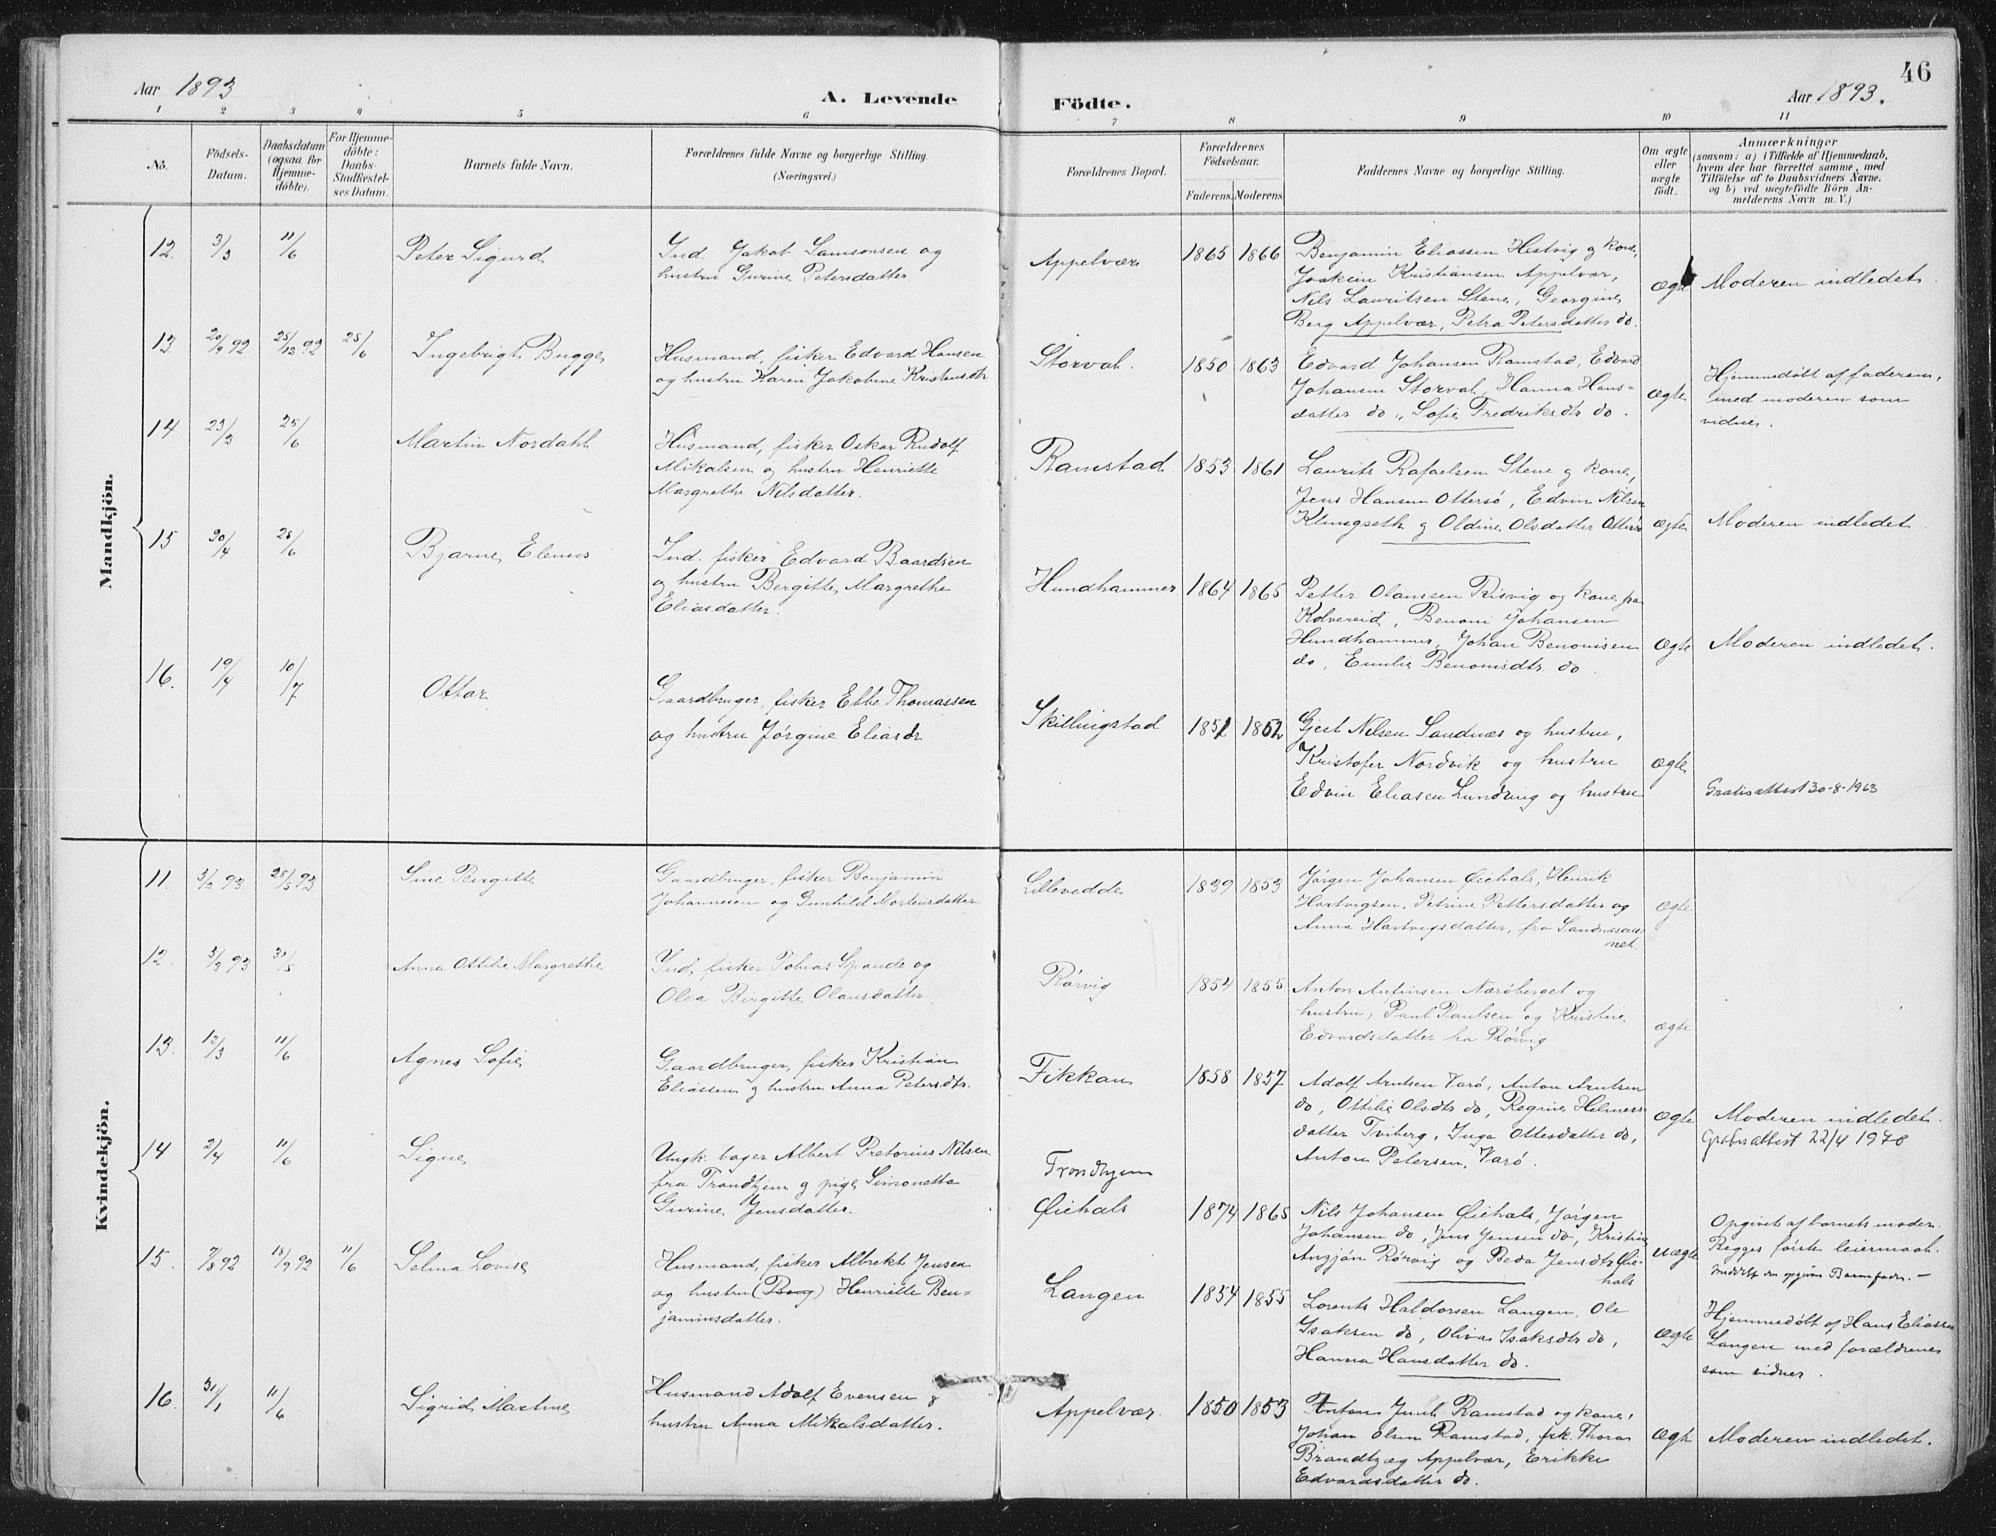 Aar 1893
A. Levende Födte.
Aar 1893.
46
1 2 3 4 5 6 7 8 9 10 11
No. Födsels-Datum. Daabsdatum (ogsaa for Hjemmedöbte). For Hjemmedöbte: Daabs-Stadfæstelses Datum. Barnets fulde Navn. Forældrenes fulde Navne og borgerlige Stilling. (Næringsvei.) Forældrenes Bopæl. Forældrenes Födselsaar. Faderens. Moderens. Faddernes Navne og borgerlige Stilling. Om ægte eller uægte födt. Anmærkninger (saasom: a) i Tilfælde af Hjemmedaab, hvem der har forrettet samme, med Tilföielse af to Daabsvidners Navne. og b) ved uægtefödte Börn Anmelderens Navn m. V.)
Mandkjön.
12. 3/3 11/6 Peter Sigurd
Ind. Jakob Samsonsen og
hustru Gurine Petersdatter
Appelvær 1865 1866
Benjamin Eliassen Hestvig og kone,
Joakim Kristiansen Appelvær,
Nils Lauritsen Stene, Georgine
Berg Appelvær, Petra Petersdatter do.
Ægte Moderen indledet.
13. 20/9 92 25/12 92 25/6 Ingebrigt Bugge
Husmand, fisker Edvard Hansen
og hustru Karen Jakobine Kristensdtr
Storval. 1850 1863
Edvard Johansen Ramstad, Edvard
Johansen Storval, Hanna Hans-
datter do, Sofie Fredriksdtr do.
Ægte
Hjemmedøbt af faderen,
med moderen som
vidne.
14 23/3 25/6 Martin Nordahl
Husmand, fisker Oskar Rudolf
Mikalsen og hustru Henriette
Margrethe Nilsdatter.
Ramstad. 1853 1861
Laurits Rafaelsen Stene og kone,
Jens Hansen Ottersø, Edvin Nilsen
Klungseth og Oldine Olsdatter Ottersø
Ægte Moderen indledet
15 30/4 25/6 Bjarne Elenus
Ind. fisker Edvard Baardsen
og hustru Bergitte Margrethe
Eliasdatter.
Hundhammer 1864 1865
Petter Olaussen Risvig og kone fra
Kolvereid, Benoni Johansen
Hundhammer, Johan Benonisen
do, Emilie Benonisdtr. do.
Ægte Moderen indledet.
16. 19/4 10/7 Ottar
Gaardbruger, fisker Ebbe Thomassen
og hustru Jørgine Eliasdr
Skillingstad 1851 1852
Gjert Nilsen Sandnæs og hustru,
Kristofer Nordvik og hustru
Edvin Eliasen Lundring og hustru
Ægte
Gratisattest 30-8-1963
Kvindekjön.
11. 5/2 93. 28/5 93 Sine Birgitte
Gaardbruger, fisker Benjamin
Johannesen og Gunhild Mortensdatter
Lillevedde 1839 1853
Jørgen Johansen Øiehals, Henrik
Hartvigsen, Petrine Pettersdatter og
Anna Hartvigsdatter, fra
Ægte
12. 5/3 93 31/5 Anna Ottilie Margrethe
Ind, fisker Tobias Spande og
Olea Birgitte Olausdatter.
Rørvig 1854 1855
Anton Antinsen Nærøberget og
hustru, Paul Paulsen og Kristine
Edvardsdatter fra Rørvig
ægte
13. 12/3 11/6 Agnes Sofie
Gaardbruger, fisker Kristian
Eliassen og hustru Anna Petersdtr.
Fikkan 1858 1857
Adolf Arntsen Varø, Anton Arntsen
do, Ottilie Olsdtr do, Regine Helmers-
datter Tviberg, Inga Ottesdatter do,
Anton Petersen, Varø.
Ægte Moderen indledet.
Gratisattest 22/4 1970
14 2/4 11/6 Signe
Ungk. bager Albert Pretorius Nilsen
fra Trondhjem og pige Simonette
Gurine Jensdatter.
Trondhjem
Øiehals 1874 1865
Nils Johansen Øiehals, Jørgen
Johansen do, Jens Jensen do, Kristine
Anzjøn Rørvig og Beda Jensdtr Øie-
hals
uægte
Opgivet af barnets moder.
Begges første leiermaal.
15. 7/8 92 18/9 92 11/6 Selma Lovise
Husmand, fisker Albrekt Jensen
og hustru (Berg) Henriette Ben-
jaminsdatter.
Langen 1854 1855
Lorents Haldorsen Langen, Ole
Isaksen do, Olivas Isaksdtr do,
Hanna Hansdatter do.
Ægte
Hjemmedøbt af Hans Eliassen
Langen med forældrene
som vidner.
16. 31/1 11/6 Sigrid Martine
Husmand Adolf Evensen &
hustru Anna Mikalsdatter.
Appelvær. 1850 1853
Anton Juul Ramstad og kone,
Johan Olsen Ramstad, fisk. Thoras
Brandtzæg Appelvær, Erikke
Edvardsdatter do.
Ægte Moderen indledet.